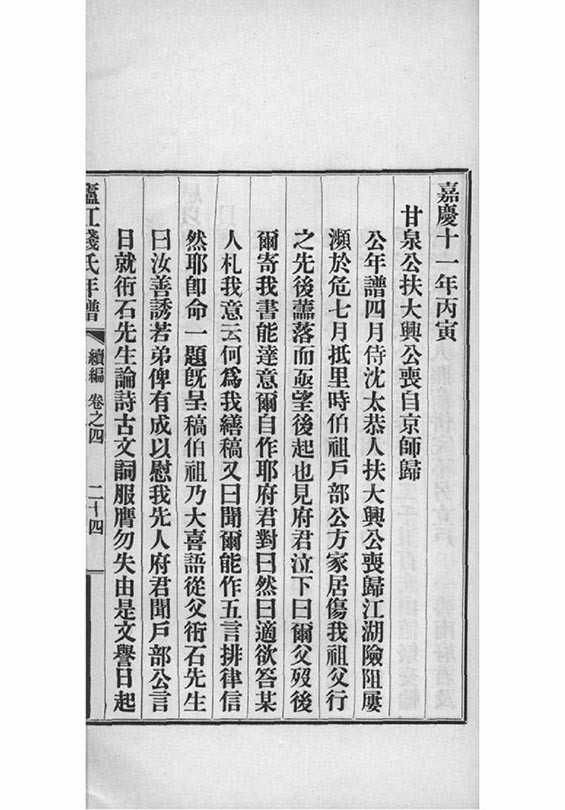 嘉慶十一年丙寅
甘泉公扶大興公喪自京師歸
公年譜四月侍沈太恭人扶大興公喪歸江湖險阻屢
瀕於危七月抵里時伯祖戶部公方家居傷我祖父行
之先後蕭落而亟望後起也見府君泣下曰爾父歿後
爾寄我書能達意爾自作耶府君對曰然曰適欲答某
人札我意云何爲我繕稿又曰聞爾能作五言排律信
然耶卽命一題旣呈稿伯祖乃大喜語從父衎石先生
曰汝善誘若弟俾有成以慰我先人府君聞戶部公言
日就衎石先生論詩古文詞服膺勿失由是文譽日起
廬江錢氏年譜 續編 卷之四 二十四